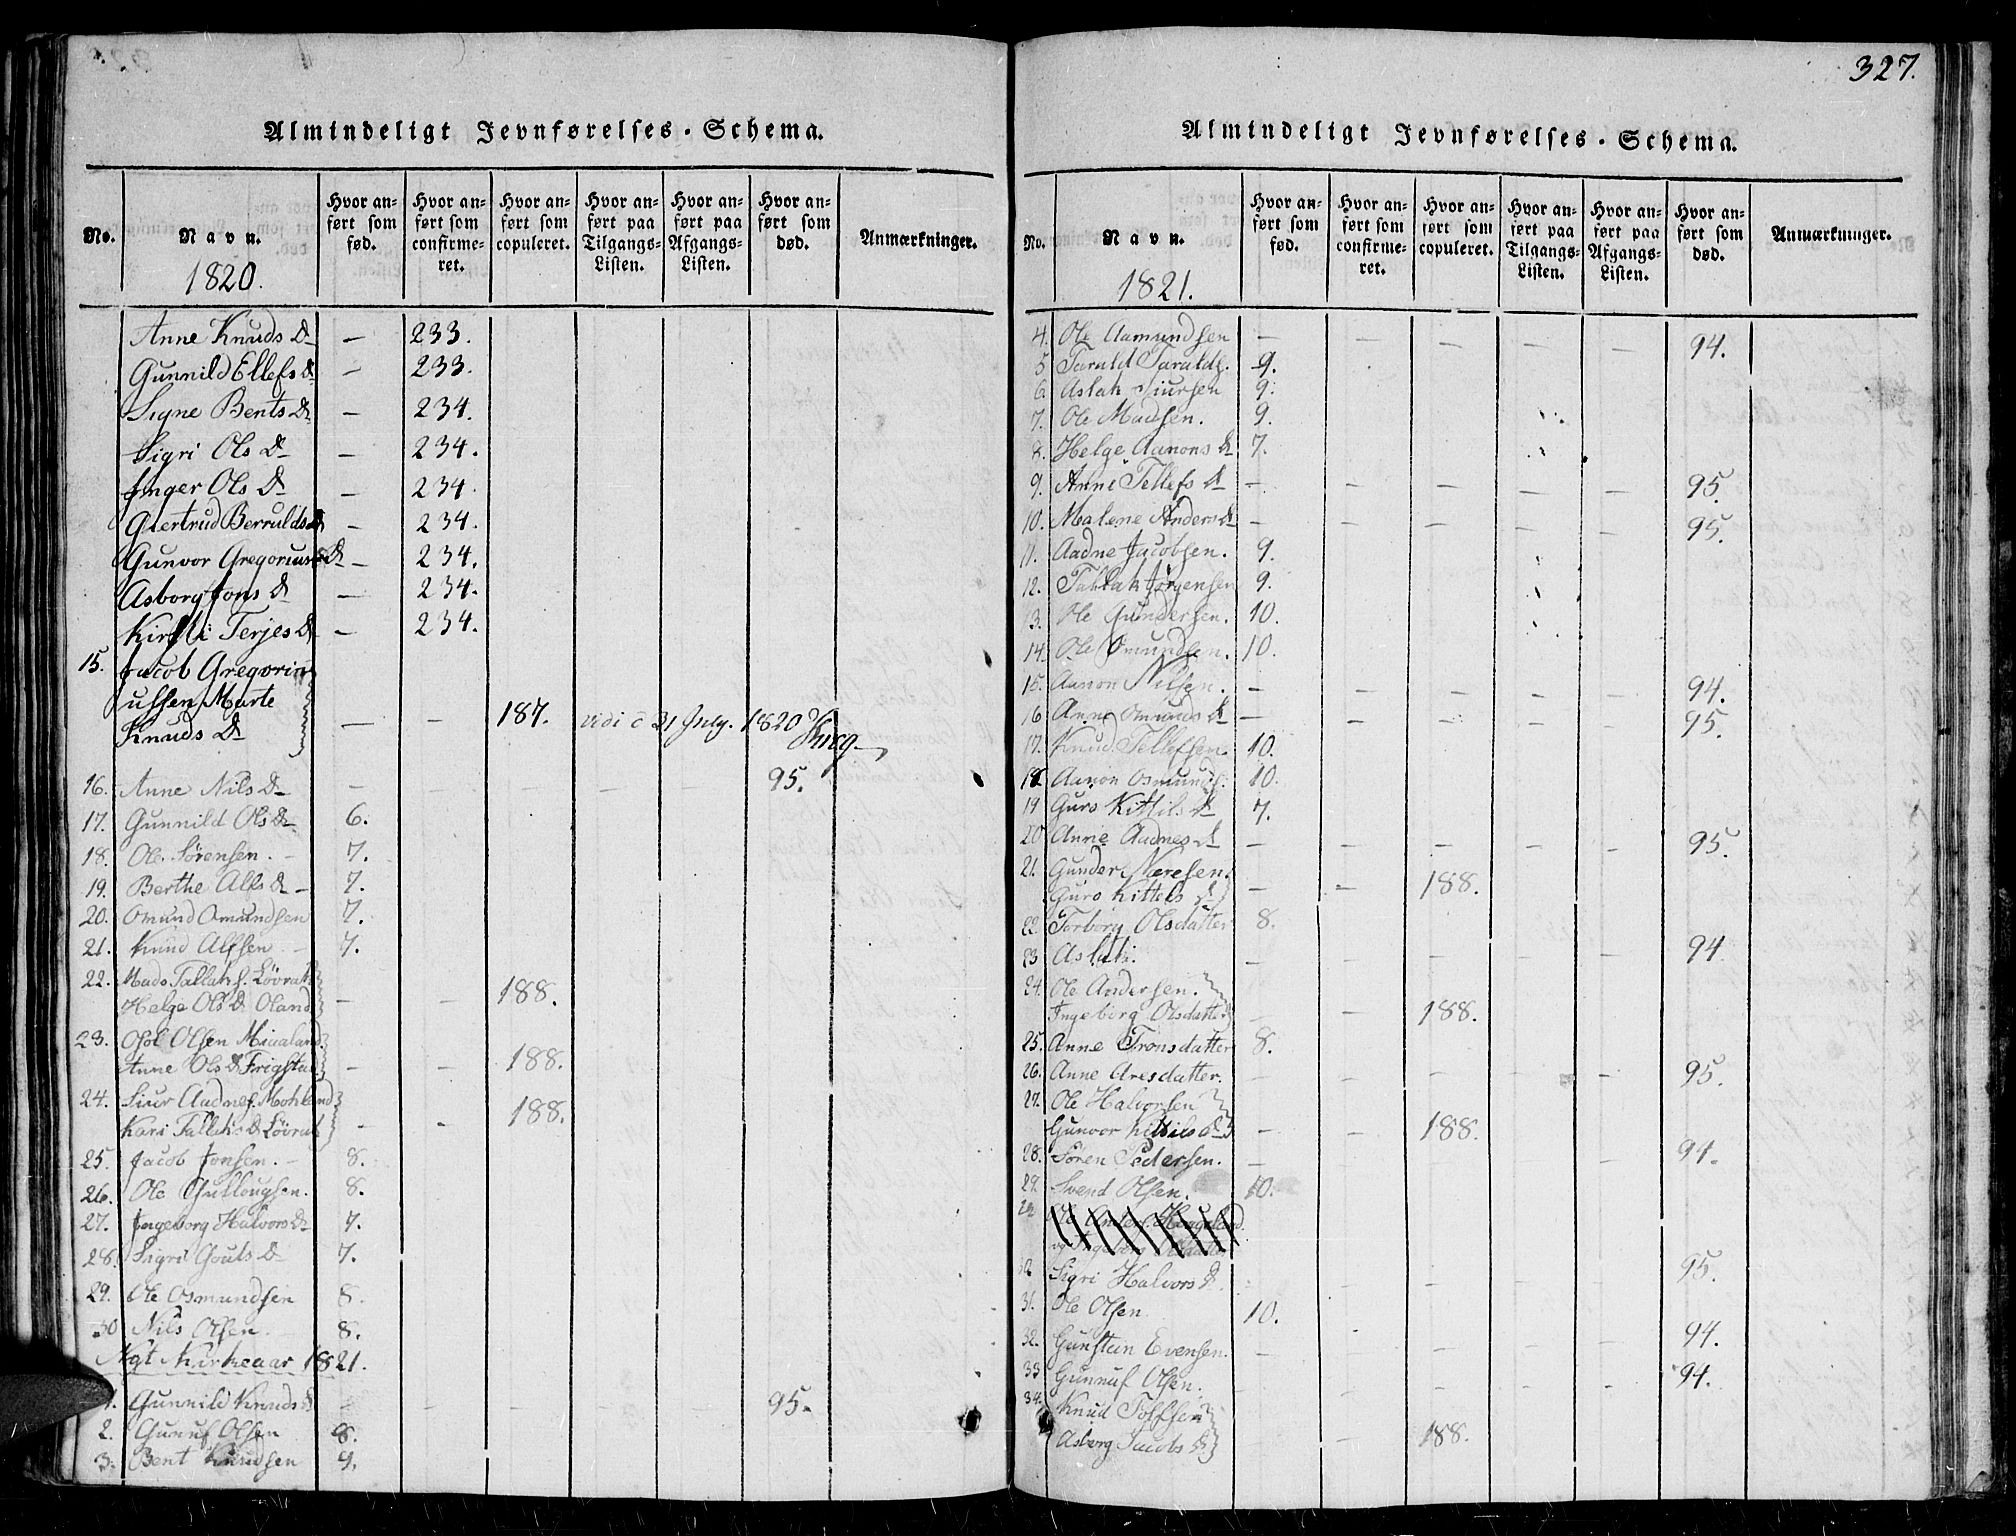 Almindeligt Jevnførelses-Schema.
No.
Navn.
1820.
Hvor anført som fød.
Hvor anført som confirmeret.
Hvor anført som copuleret.
Hvor anført paa Tilgangs-Listen.
Hvor anført paa Afgangs-Listen.
Hvor anført som død.
Anmærkninger.
Anne Knuds D — 233.
Gunnild Ellefs D — 233.
Signe Bents D — 234.
Sigri Ols D — 234.
Inger Ols D — 234.
Giertrud Berrulds D — 234.
Gunvor Gregorius D — 234.
Asborg Jons D — 234.
Kirsti Terjes D — 234.
15. Jacob Gregori
ussen Marte
Knuds D — — 187. vidi d 31 July. 1820
16. Anne Nils D — — — — — 95.
17. Gunnild Ols D — 6.
18. Ole Sørensen. — 7.
19. Berthe Alfs D — 7.
20. Omund Omundsen 7.
21. Knud Alfsen — 7.
22. Mads Tallaks. Løvrak
Helge Ols D Oland — — 188.
23. Olsen Miaaland
Anne Ols D Frigstad — — 188.
24. Siur Aadnes. Mohland
Kari Tallaks D Løvrak — — 188.
25. Jacob Jonsen. — 8.
26. Ole Gullougsen. 8.
27. Ingeborg Halvors D 7.
28. Sigri Gouts D — 7.
29. Ole Osmundsen 8.
30 Nils Olsen. — 8.
Nyt Kirkeaar 1821.
1. Gunnild Knuds D — — — — — 95.
2. Gunuf Olsen 8.
3. Bent Knudsen 9.
327.
Almindeligt Jevnførelses-Schema.
No.
Navn.
1821.
Hvor anført som fød.
Hvor anført som confirmeret.
Hvor anført som copuleret.
Hvor anført paa Tilgangs-Listen.
Hvor anført paa Afgangs-Listen.
Hvor anført som død.
Anmærkninger.
4. Ole Aamundsen — — — — — 94.
5 Tarald Taralds. 9.
6. Aslak Siursen 9.
7. Ole Madsen. 9.
8. Helge Aanons D 7.
9. Anne Tellefs D — — — — — 95.
10. Malene Anders D — — — — — 95.
11. Aadne Jacobsen. 9.
12. Tallak Jørgensen 9.
13. Ole Gundersen. 10.
14. Ole Omundsen. 10.
15. Aanon Nilsen. — — — — — 94.
16 Anne Omunds D — — — — — 95.
17. Knud Tellefsen. 10.
18 Aanon Osmunds. 10.
19 Guro Kittils D 7.
20 Anne Aadnes D — — — — — 95.
21. Gunder Næresen.
Guro Kittels D — — 188.
22. Torborg Olsdatter 8.
23 Aslak. — — — — — 94
24. Ole Andersen.
Ingeborg Olsdatter — — 188.
25. Anne Tronsdatter 8.
26. Anne Aresdatter. — — — — — 95.
27. Ole Halvorsen
Gunvor Kittils D — — 188.
28. Søren Pedersen. — — — — — 94.
29. Svend Olsen. 10.
Sigri Halvors D — — — — — 95.
31. Ole Olsen 10.
32. Gunstein Evensen. — — — — — 94.
33 Gunnuf Olsen. — — — — — 94.
34. Knud Tolfsen
Asborg Jacobs D — — 188.